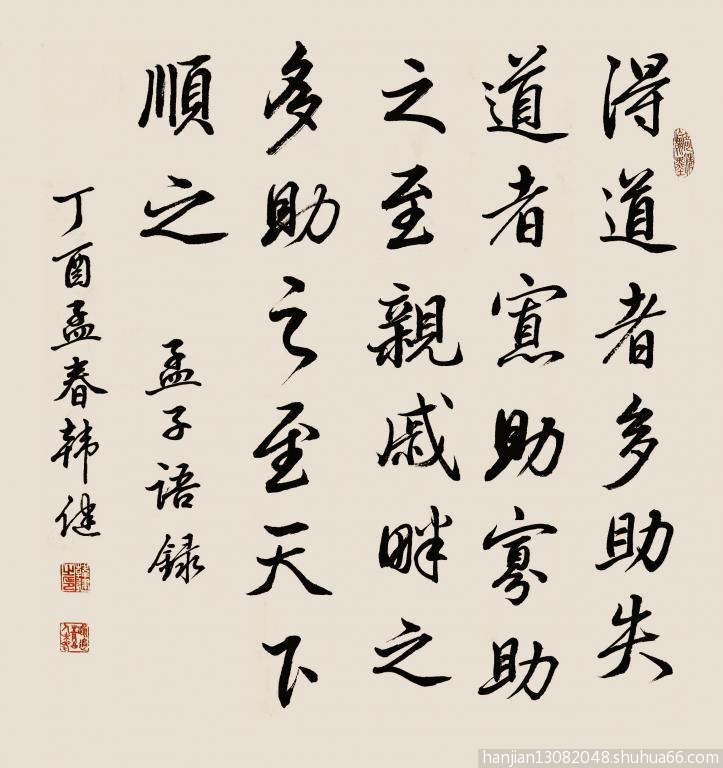 得道者多助失
道者寡助寡助
之至親戚畔之
多助之至天下
順之 孟子语録
丁酉孟春韩健
hanjian13082048.shuhua66.com